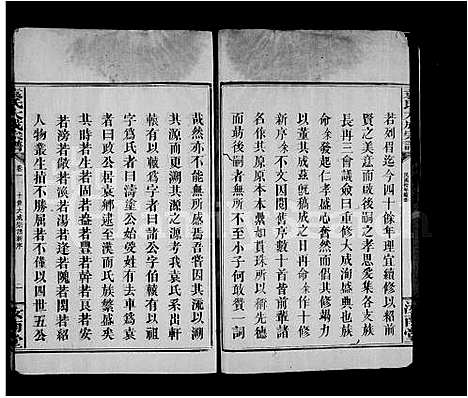 若列眉迄今四十餘年理宜續修以紹前
賢之美意而成後嗣之孝思爰集各支族
長再三會議僉曰重修大成洵盛典也族
眾發起仁孝盛心奮然而倡其修竭力
以其成茲既稿成之日再命余作十修
新序余不文因閱舊序數十首皆前輩諸
名家其原原本本昷如貫珠所以衍先德
而勗後嗣者無不至小子何敢贊一詞
哉然亦不能無所感焉吾族自可以溯
其源而更溯其源之源者我袁氏系出軒
轅有以轅為字者曰諸公字伯轅有以其
字為氏者曰濤塗公始受姓有去車為袁
者曰政公居袁鄉逮至漢而氏族繁盛矣
其時若生若固若豊若幹若良若安
若滂若敞若渙若湯若逢若隗若閎若紹
人物叢生指不勝屈者不僅以四世五公
袁氏大成宗譜
卷一
十修大成宗譜新序
一
汝南堂